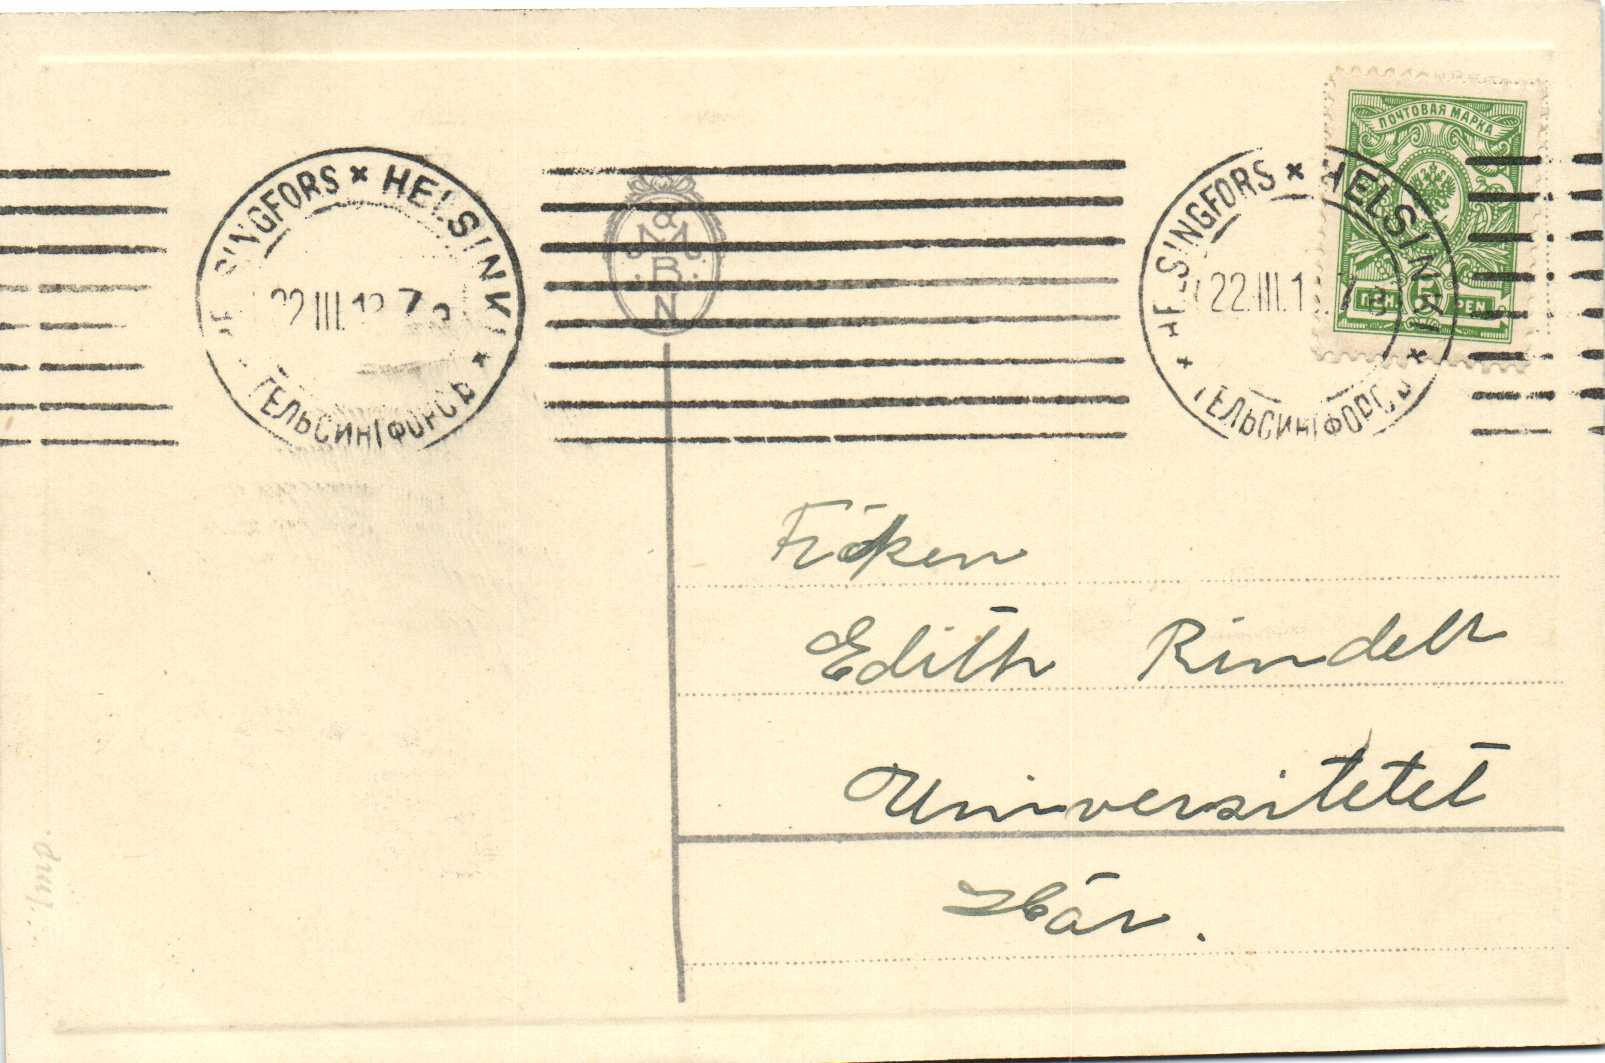 HELSINGFORS * HELSINKI *
22.III.1
ГЕЛЬСИНГФОРСЪ
HELSINGFORS * HELSINKI *
22.III.1
* ГЕЛЬСИНГФОРСЪ
ПОЧТОВАЯ МАРКА
5
PEN.
B
N
Fröken
Edith Rindell
Universitetet
Här.